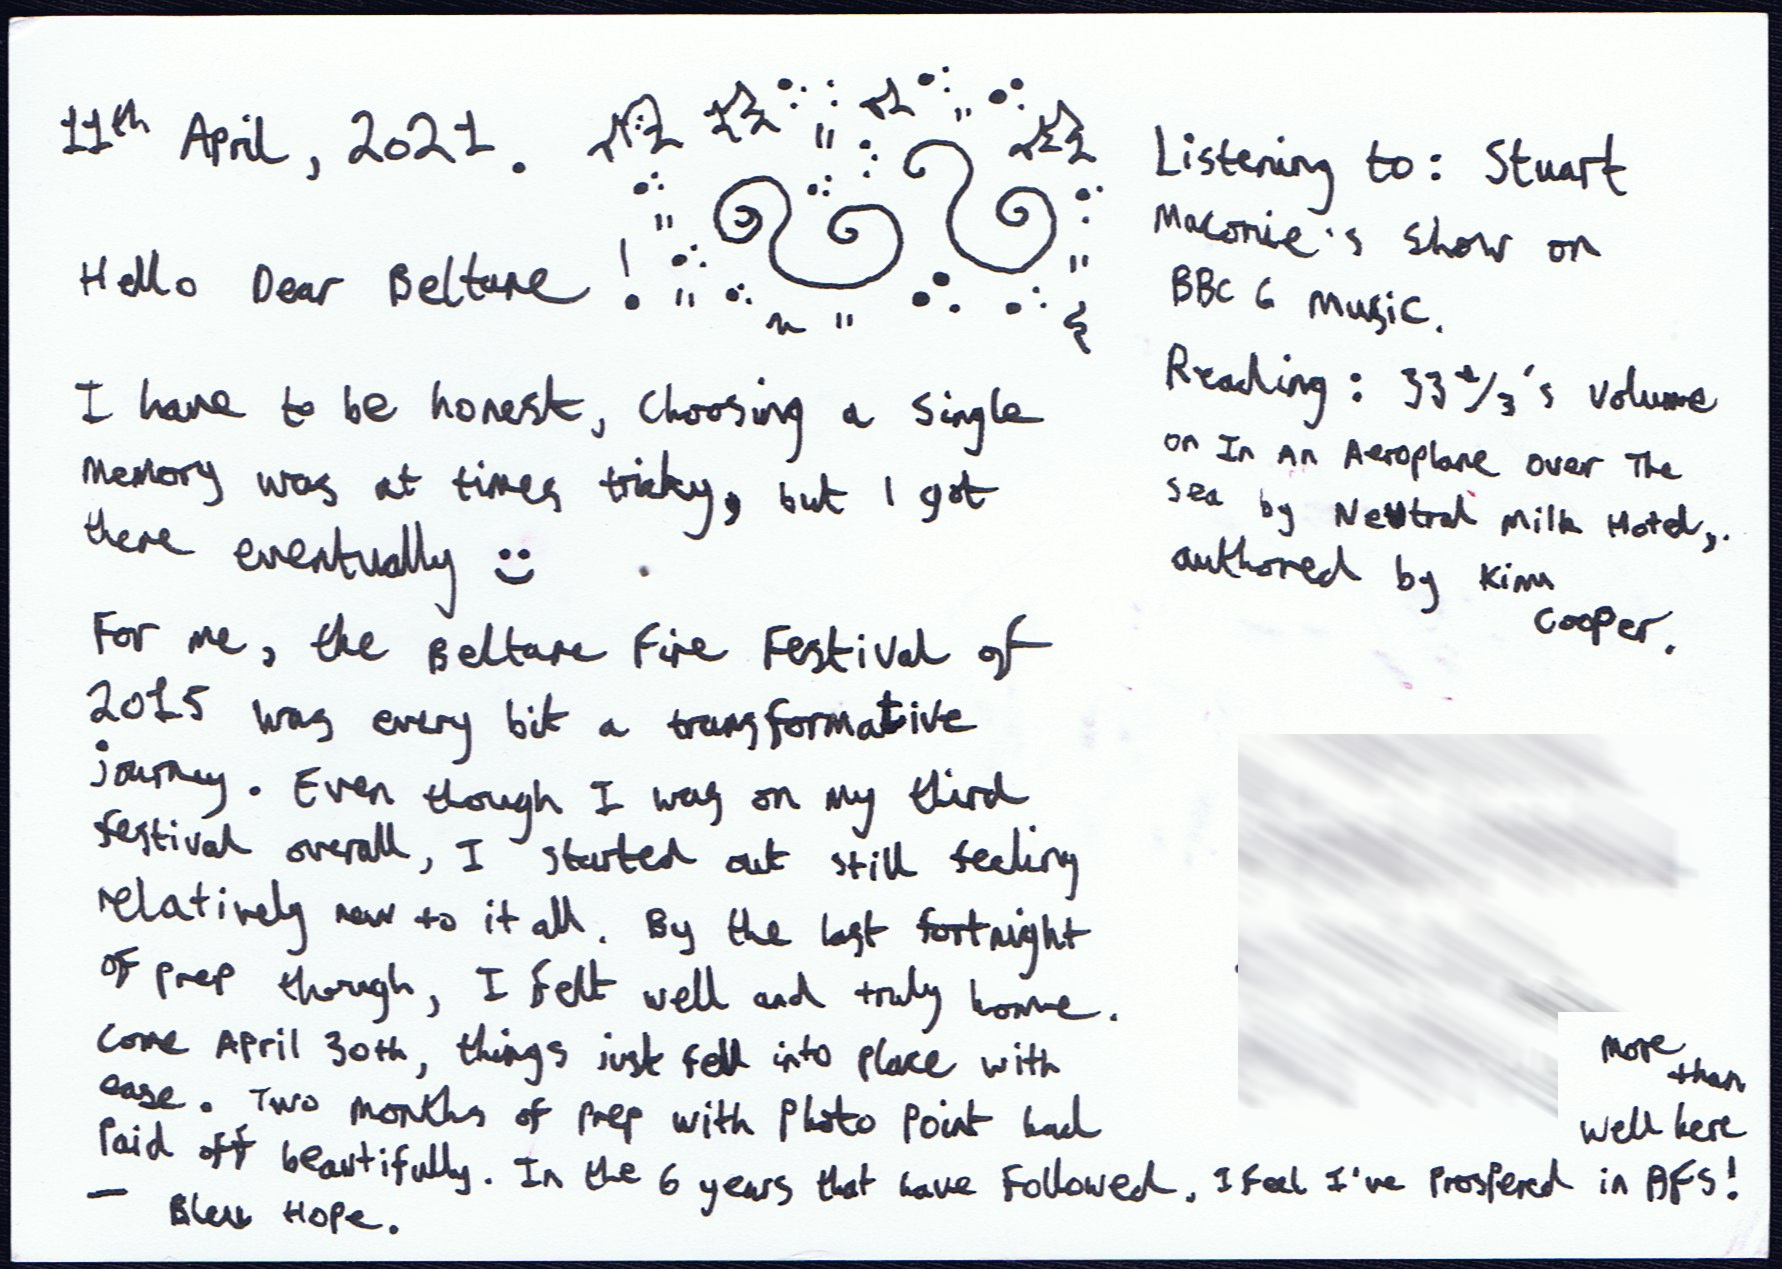 11th April, 2021.
Hello Dear Beltane !
I have to be honest, choosing a single
memory was at times tricky, but I got
there eventually
For me, the Beltane Fire Festival of
2015 was every bit a transformative
journey. Even though I was on my third
festival overall, I started out still feeling
relatively new to it all. By the last fortnight
of prep though, I felt well and truly home.
Come April 30th, things just fell into place with
ease. Two months of prep with Photo Point had
paid off beautifully. In the 6 years that have followed, I feel I've prospered in BFS!
more than
well here
— Bleu Hope.
Listening to: Stuart
Maconie's show on
BBC 6 Music.
Reading: 33 1/3's volume
on In An Aeroplane Over The
Sea by Neutral Milk Hotel,.
authored by Kim
Cooper.